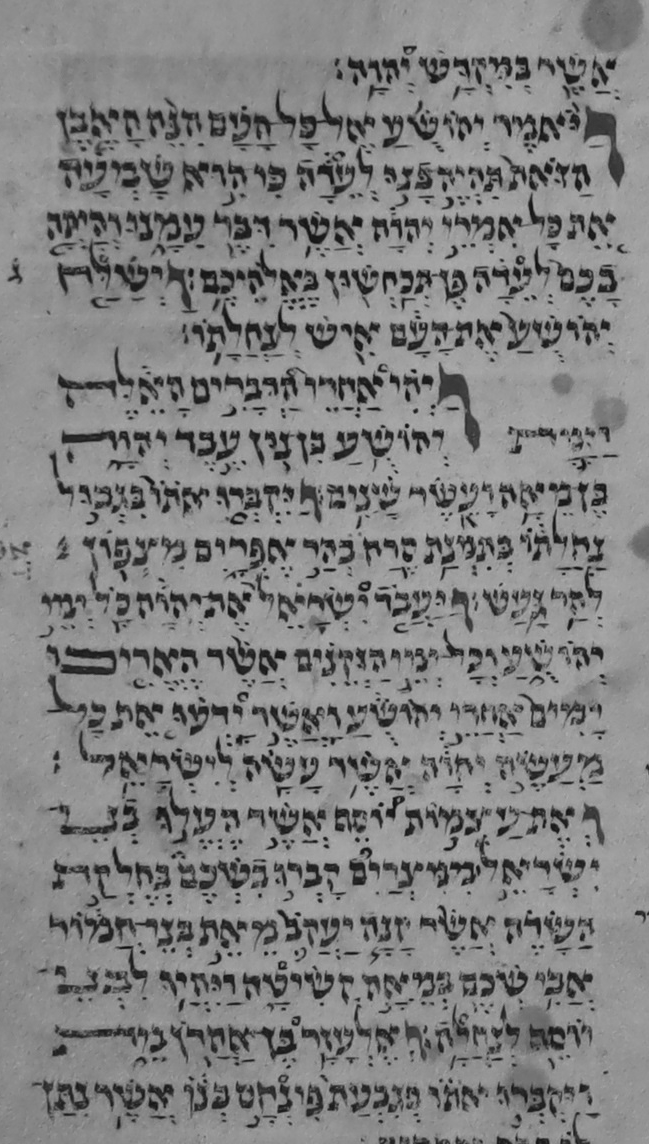 אֲשֶׁר בְּמִקְדַּשׁ יְהוָה׃
וַיֹּאמֶר יְהוֹשֻׁעַ אֶל כָּל הָעָם הִנֵּה הָאֶבֶן
הַזֹּאת תִּהְיֶה בָּנוּ לְעֵדָה כִּי הִיא שָׁמְעָה
אֵת כָּל אִמְרֵי יְהוָה אֲשֶׁר דִּבֶּר עִמָּנוּ וְהָיְתָה
בָכֶם לְעֵדָה פֶּן תְּכַחֲשׁוּן בֵּאלֹהֵיכֶם׃ וַיְשַׁלַּח
יְהוֹשֻׁעַ אֶת הָעָם אִישׁ לְנַחֲלָתוֹ׃
וַיְהִי אַחֲרֵי הַדְּבָרִים הָאֵלֶּה
וַיָּמָת יְהוֹשֻׁעַ בִּן נוּן עֶבֶד יְהוָה
בֶּן מֵאָה וָעֶשֶׂר שָׁנִים׃ וַיִּקְבְּרוּ אֹתוֹ בִּגְבוּל
נַחֲלָתוֹ בְּתִמְנַת סֶרַח בְּהַר אֶפְרָיִם מִצְּפוֹן
לְהַר גָּעַשׁ׃ וַיַּעֲבֹד יִשְׂרָאֵל אֶת יְהוָה כֹּל יְמֵי
יְהוֹשֻׁעַ וְכֹל יְמֵי הַזְּקֵנִים אֲשֶׁר הֶאֱרִיכוּ
יָמִים אַחֲרֵי יְהוֹשֻׁעַ וַאֲשֶׁר יָדְעוּ אֵת כָּל
מַעֲשֵׂה יְהוָה אֲשֶׁר עָשָׂה לְיִשְׂרָאֵל׃
וְאֶת עַצְמוֹת יוֹסֵף אֲשֶׁר הֶעֱלוּ בְנֵי
יִשְׂרָאֵל מִמִּצְרַיִם קָבְרוּ בִשְׁכֶם בְּחֶלְקַת
הַשָּׂדֶה אֲשֶׁר קָנָה יַעֲקֹב מֵאֵת בְּנֵי חֲמוֹר
אֲבִי שְׁכֶם בְּמֵאָה קְשִׂיטָה וַיִּהְיוּ לִבְנֵי
יוֹסֵף לְנַחֲלָה׃ וְאֶלְעָזָר בֶּן אַהֲרֹן מֵת
וַיִּקְבְּרוּ אֹתוֹ בְּגִבְעַת פִּינְחָס בְּנוֹ אֲשֶׁר נִתַּן